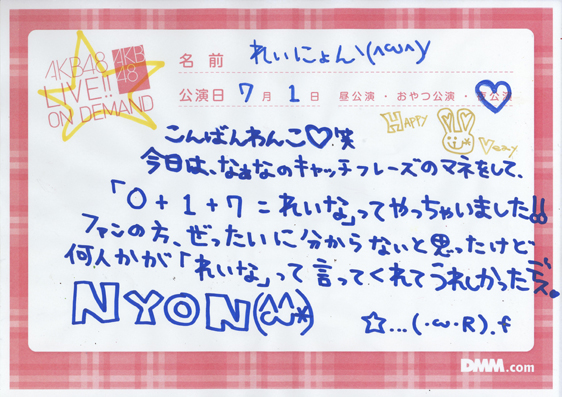 AKB48 AKB48
LIVE!!
ON DEMAND
名前 れいにょんヽ(^ω^)ノ
公演日 7月1日 昼公演・おやつ公演・夜公演
HAPPY Veay
こんばんわんこ♡笑
今日は、なぁなのキャッチフレーズのマネをして、
「0+1+7=れいな」ってやっちゃいました!!
ファンの方、ぜったいに分からないと思ったけど
何人かが「れいな」って言ってくれてうれしかったデス。
NYON(^ω^*)
☆...(・ω・R).f
DMM.com